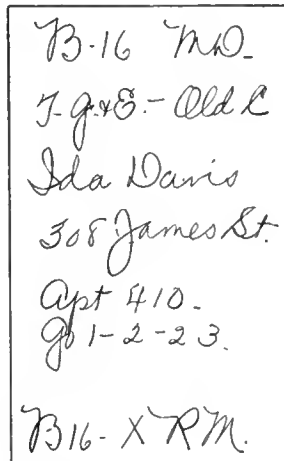 B-16 MD-
T-G.&E.- Old C
Ida Davis
308 James St.
Apt 410-
Go 1-2-23.
B16- X RM.